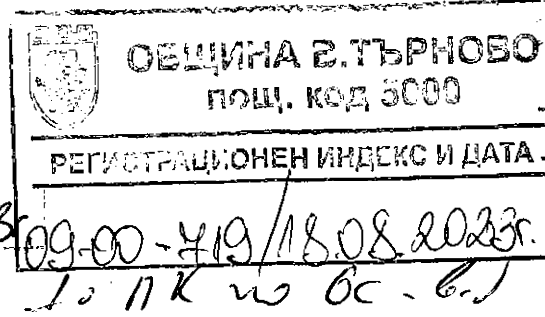 ОБЩИНА В.ТЪРНОВО
ПОЩ. КОД 5000
РЕГИСТРАЦИОНЕН ИНДЕКС И ДАТА
09-00-719/18.08.2023г.
ПК по